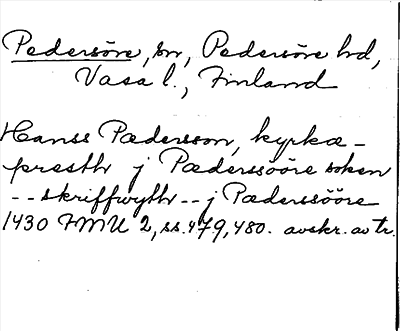 Pedersöre, sn, Pedersöre hd,
Vasa l., Finland
Hanss Pædersson, kyrkæ-
presthr j Pæderssööre soken
-- skriffwythr -- j Pæderssööre
1430 FMU 2, ss. 479, 480. avskr. av tr.